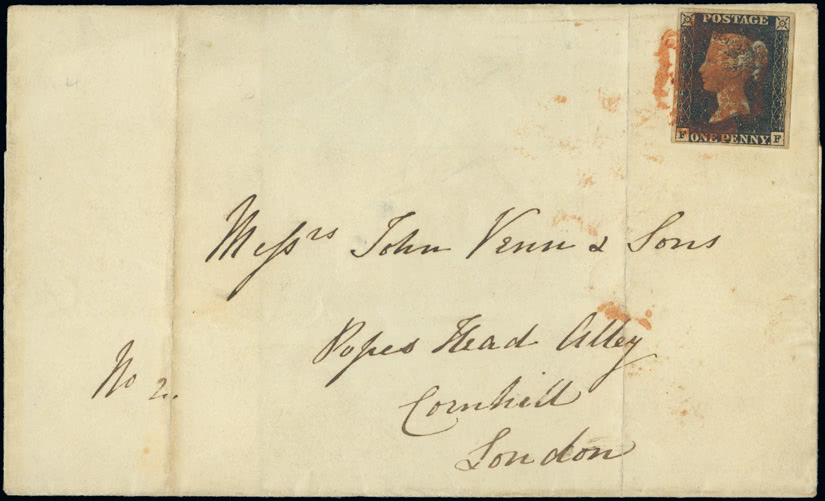 POSTAGE
F ONE PENNY. F
Messrs John Venn & Sons
Popes Head Alley
No 2.
Cornhill
London